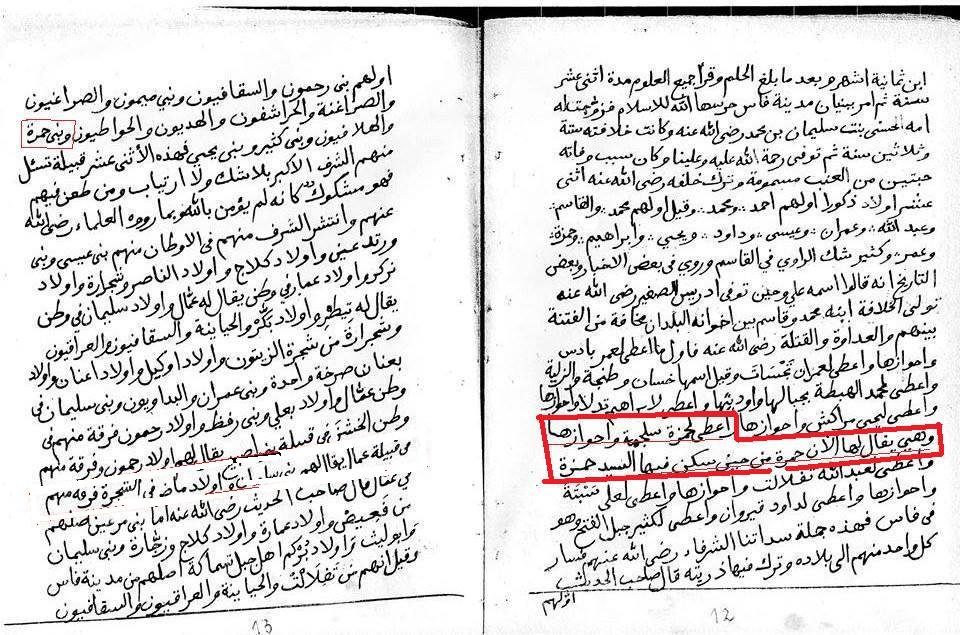 ابن ثمانية اشهر وبعد ما بلغ الحلم وقرأ جميع العلوم مدة اثنى عشر
سنة ثم امر ببنيان مدينة فاس حرسها الله للاسلام
امه الحسنى بنت سليمان بن محمد رضى الله عنه وكانت خلافته ستة
وثلاثين سنة ثم توفى رحمة الله عليه وعلينا وكان سبب وفاته
حبتين من العنب مسمومة وترك خلفه رضى الله عنه اثنى
عشر اولاد ذكورا اولهم احمد ومحمد وقيل اولهم محمد والقاسم
وعبد الله وعمران وعيسى وداود ويحيى وابراهيم وحمزة
وعمر وكثير شك الراوي في القاسم وروي في بعض الاخبار وبعض
التاريخ انه قالوا اسمه علي وحين توفى ادريس الصغير رضى الله عنه
تولى الخلافة ابنه محمد وقاسم بين اخوانه البلدان مخافة من الفتنة
بينهم والعداوة والقتلة رضى الله عنه فاول ما اعطى لعمر بادس
واحوازها واعطى لعمران وقيل اسمها خسان وطنجة والزلية
واعطى لمحمد الهبطة بجبالها واعطى لابراهيم واحوازها
واعطى ليحيى مراكش واحوازها اعطى لحمزة واحوازها
وهي يقال لها الان حمزة من حين سكن فيها السيد حمزة
واعطى لعبد الله تفلالت واحوازها واعطى لعلى
واحوازها واعطى لداود قيروان واعطى لكثير جبل الفتح وهو
فى فاس فهذه جملة سداتنا الشرفاء رضى الله عنهم فسار
كل واحد منهم الى بلاده وترك فيها ذريته قال صاحب الحديث
اولهم
12
اولهم بنى رحمون والسقافيون وبني ميمون والصراغنيون
والصراغنة والحراشفون والهديون والحواطيون وبني حمزة
والهلافيون وبنى كثير وبنى يحيى فهذه الأثنى عشر قبيلة تسئل
منهم الشرف الاكبر بلا شك ولا ارتياب ومن طعن فيهم
فهو مشكوك كانه لم يؤمن بالله وبما رووه العلماء رضى الله
عنهم وانتشر الشرف منهم فى الاوطان منهم بنى عيسى وبنى
ورتدغين واولاد كلاج واولاد الناصر وشجارة واولاد
نركو واولاد عمار في وطن يقال له عثال واولاد سليمان في وطن
يقال له واولاد بكرة والحيانية والسقافيون والعراقيون
وشجرارة من شجرة الزيتون واولاد اوكيل واولاد اعنان واولاد
بعنان صرخة واحدة وبنى عمران والبداويون وبنى سليمان في
وطن عثال واولاد بعلى وبنى رفظ واولاد رحمون فرقة منهم فى
وطن الخشنة فى قبيلة يقال لهم اولاد رحمون وفرقة منهم
فى قبيلة عمال يقال لهم اولاد ماضى فى الشجرة فرقة منهم
فى عثال قال صاحب الحديث رضى الله عنه اما بنى مرعين اصلهم
من واولاد عمارة واولاد كلاج وبنى سليمان
واولاد بركم اهل جبل اصلهم من مدينة فاس
وقيل انهم من تفلالت والحيانية والعراقيون والسقافيون
13